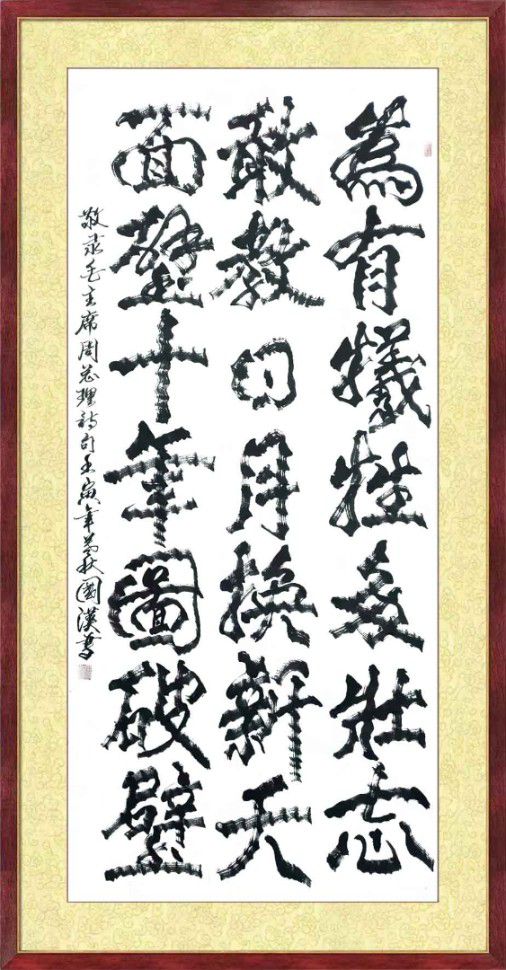 為有犧牲多壯志
敢教日月換新天
面壁十年圖破壁
敬录毛主席周总理詩句壬寅年秋國漢書